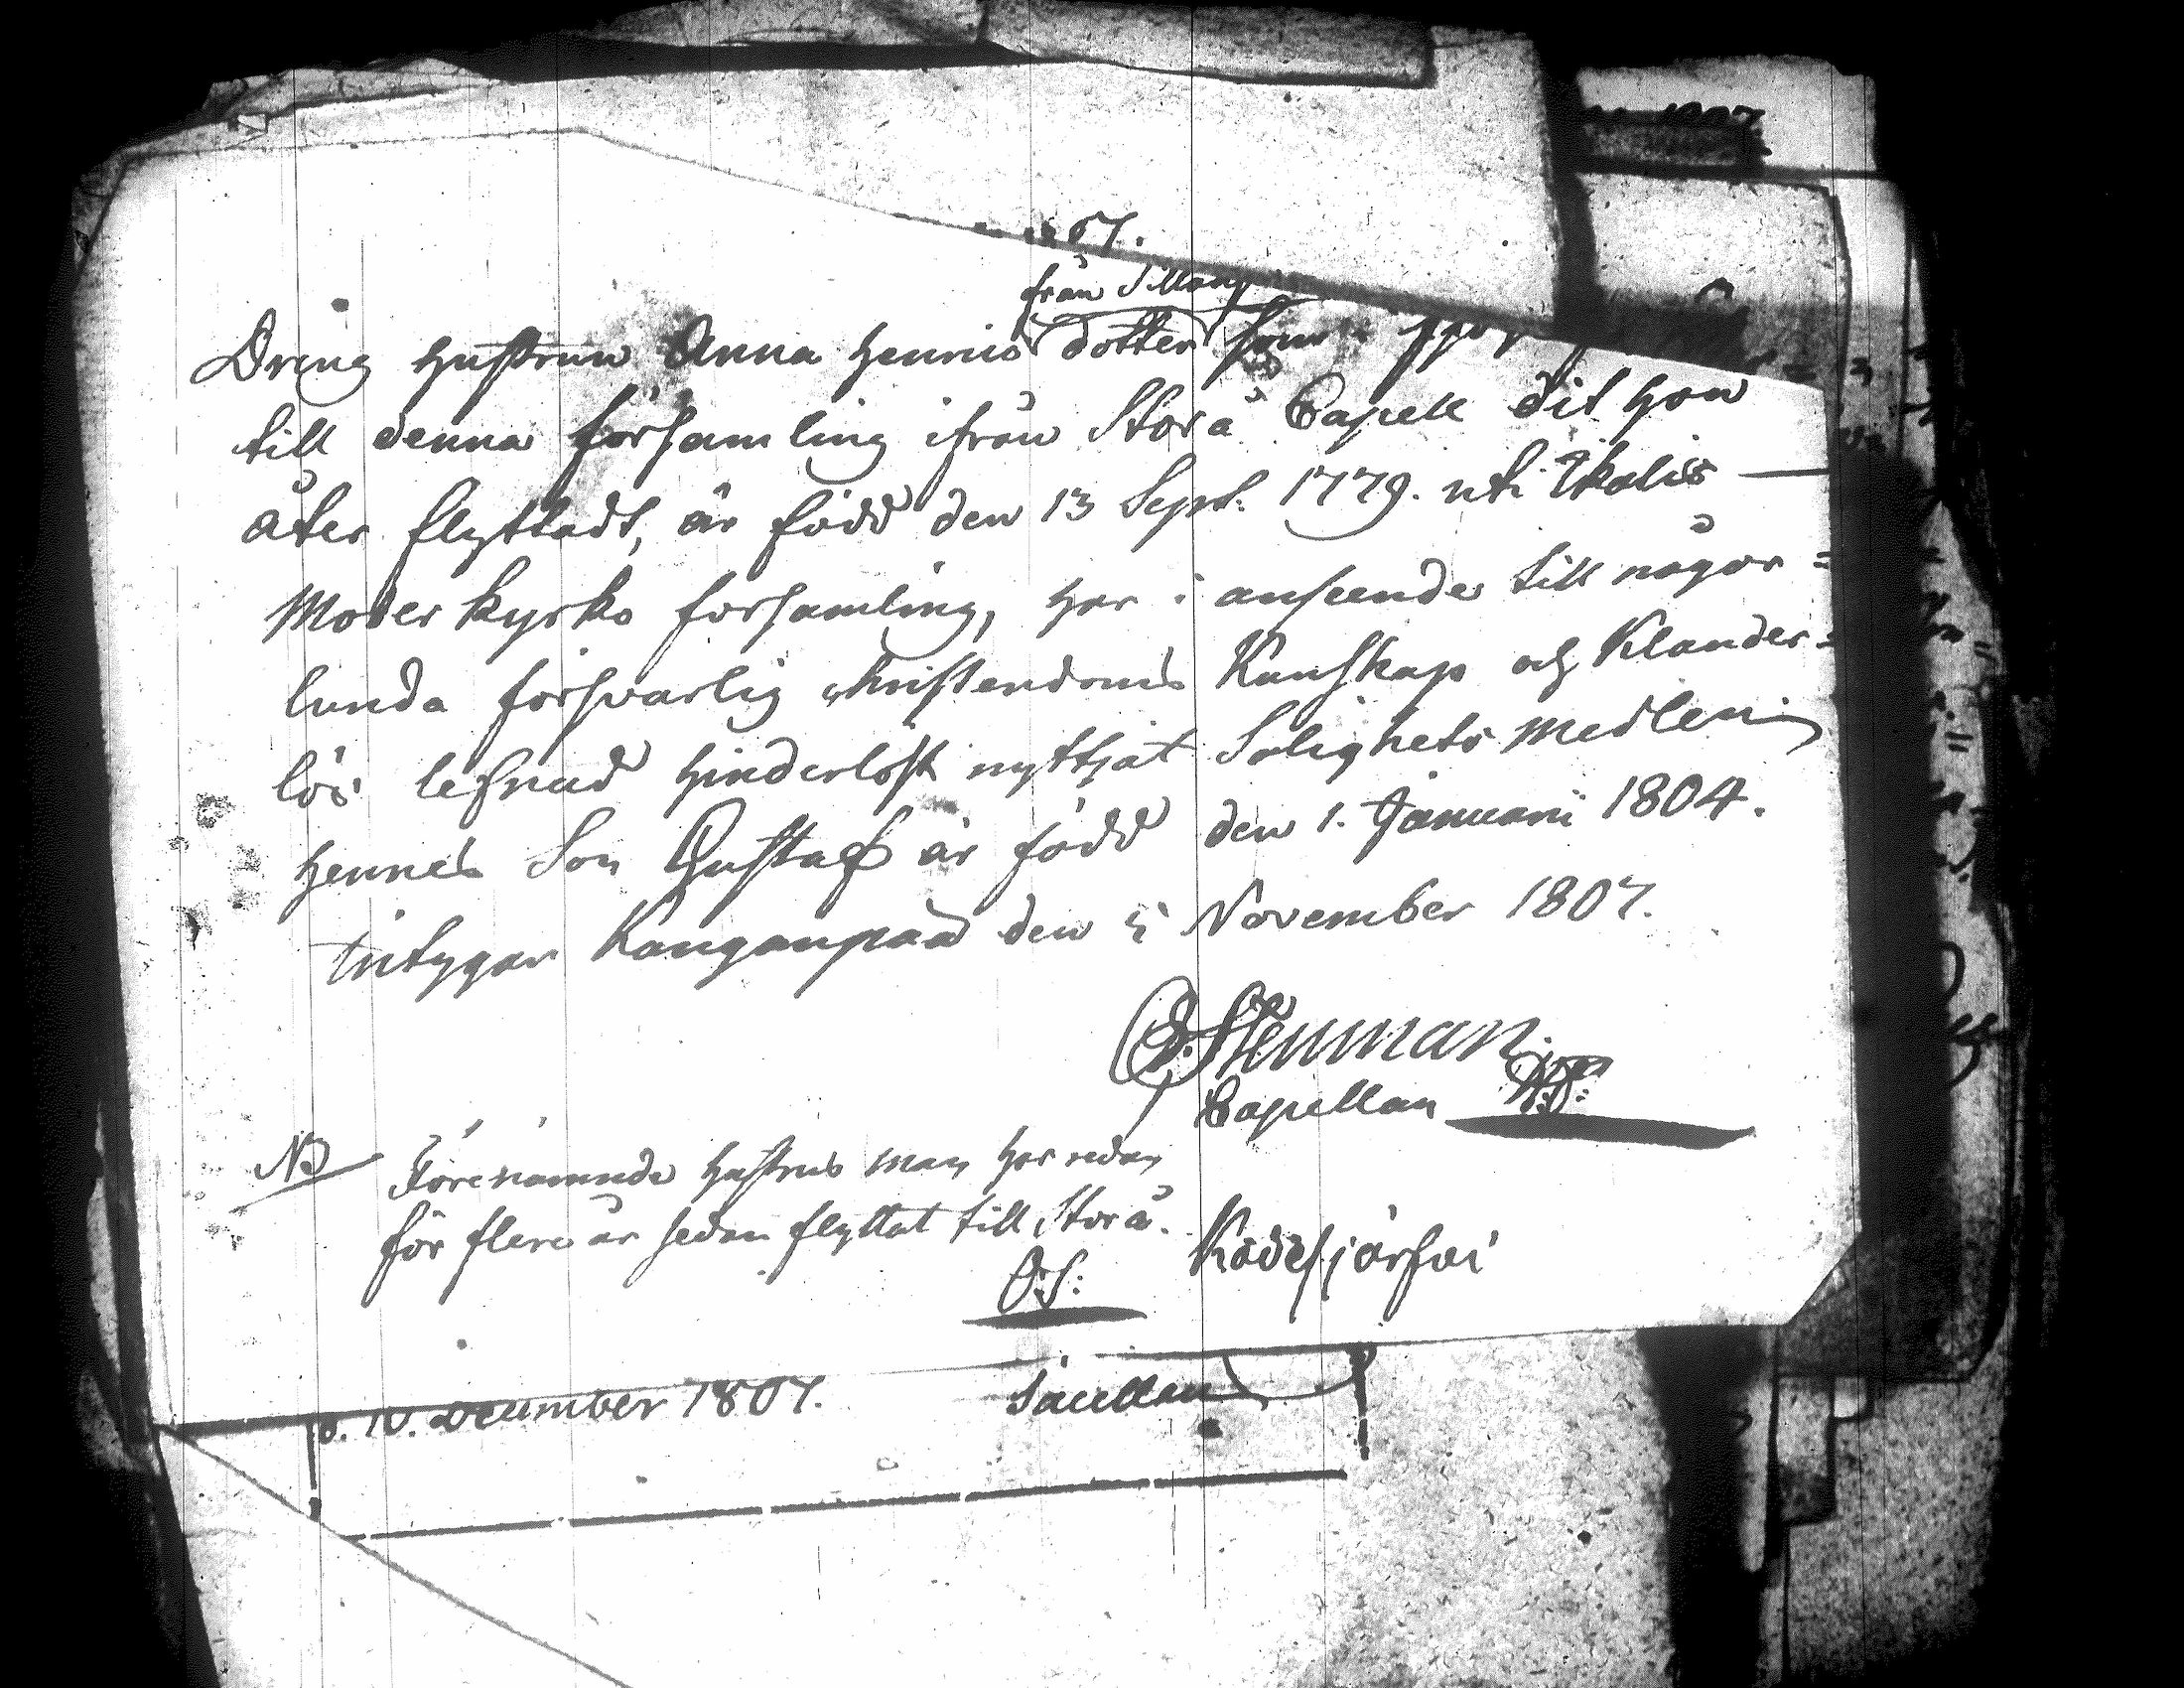 1807.
från
Dräng hustrun Anna Henriksdotter som
till denna församling ifrån Storå Capell dit hon
åter flyttadt, är född den 13 Sept. 1779. uti Ikalis
Moderkyrko församling, har i anseende till någor=
lunda försvarlig christendoms Kunskap och Klander=
lös lefnad hinderlöst nyttjat Salighets Medlen;
hennes Son Gustaf är född den 1. Januari 1804.
intygar Kangaspää den 5 November 1807.
Stenman.
Capellan
NB Förenämnde hustrus man har redan
för flere år sedan flyttat till Storå.
O:S:
Ködesjärfvi
December 1807. Sacellan